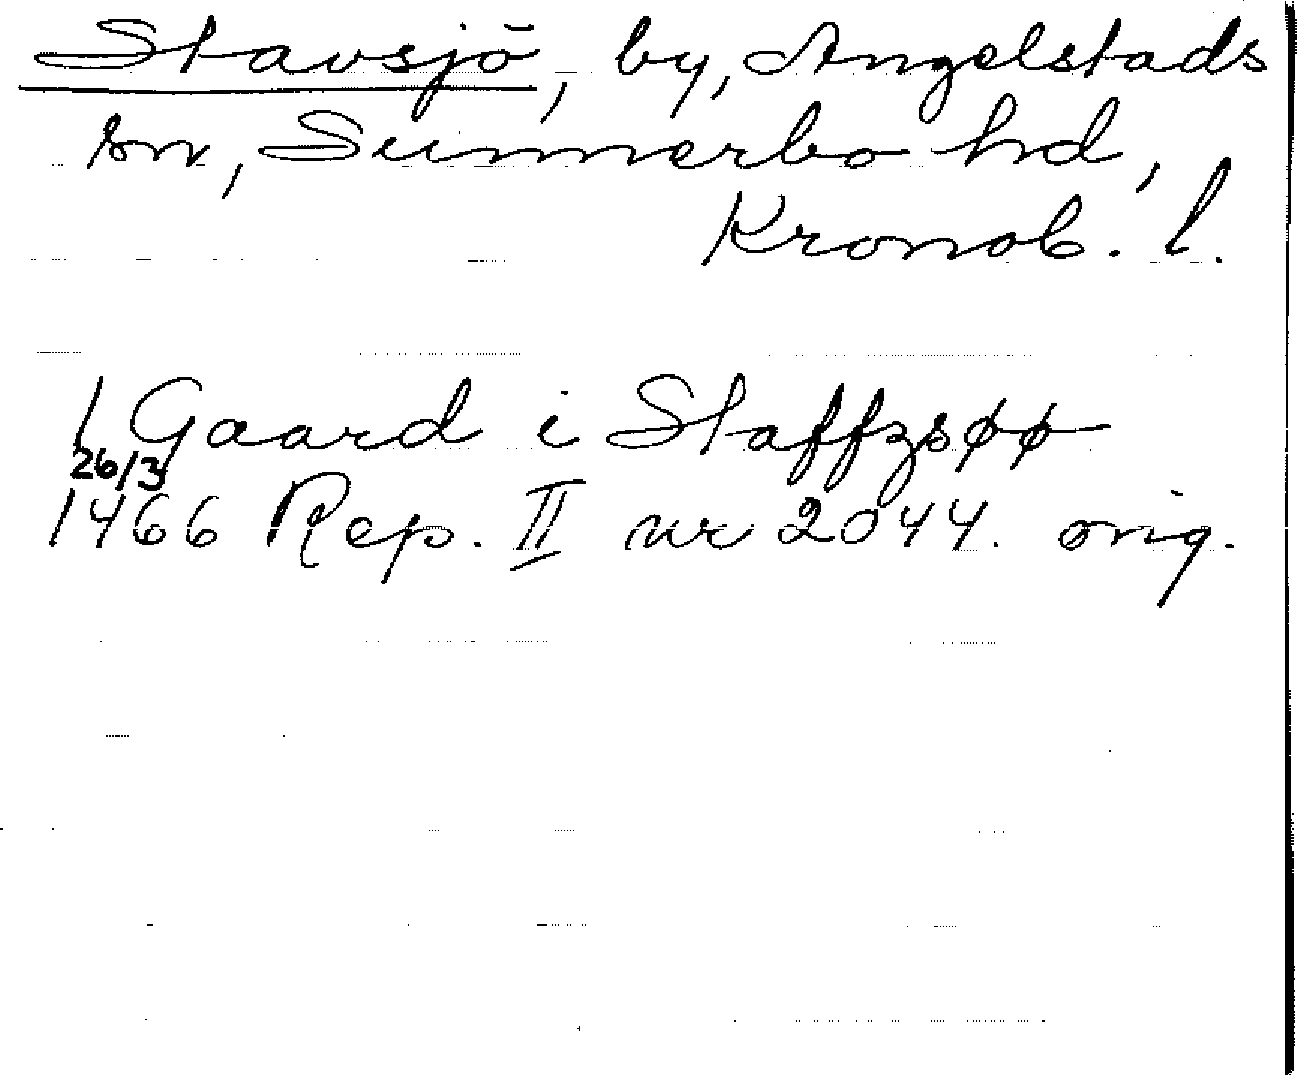 Stavsjö, by, Angelstads
sn, Sunnerbo hd,
Kronob. l.
1 Gaard i Staffzsøø
26/3
1466 Rep. II nr 2044. orig.